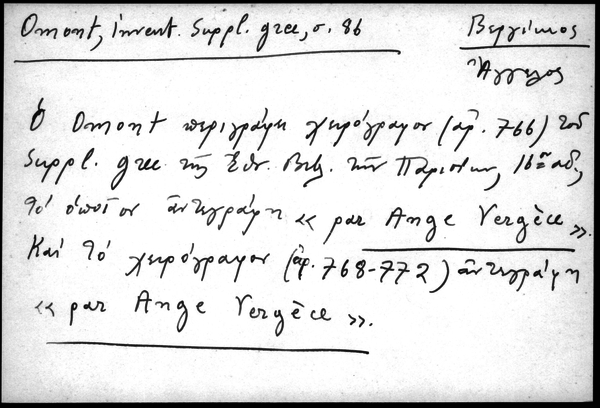 Omont, invent. Suppl. grec, σ. 86
Βεργίκιος
Ἄγγελος
Ὁ Omont περιγράφει χειρόγραφον (ἀρ. 766) τοῦ
Suppl. grec τῆς Ἐθν. Βιβ. τῶν Παρισίων, 16ου αἰ.,
τὸ ὁποῖον ἀντεγράφη « par Ange Vergèce ».
Καὶ τὸ χειρόγραφον (ἀρ. 768-772) ἀντεγράφη
« par Ange Vergèce ».